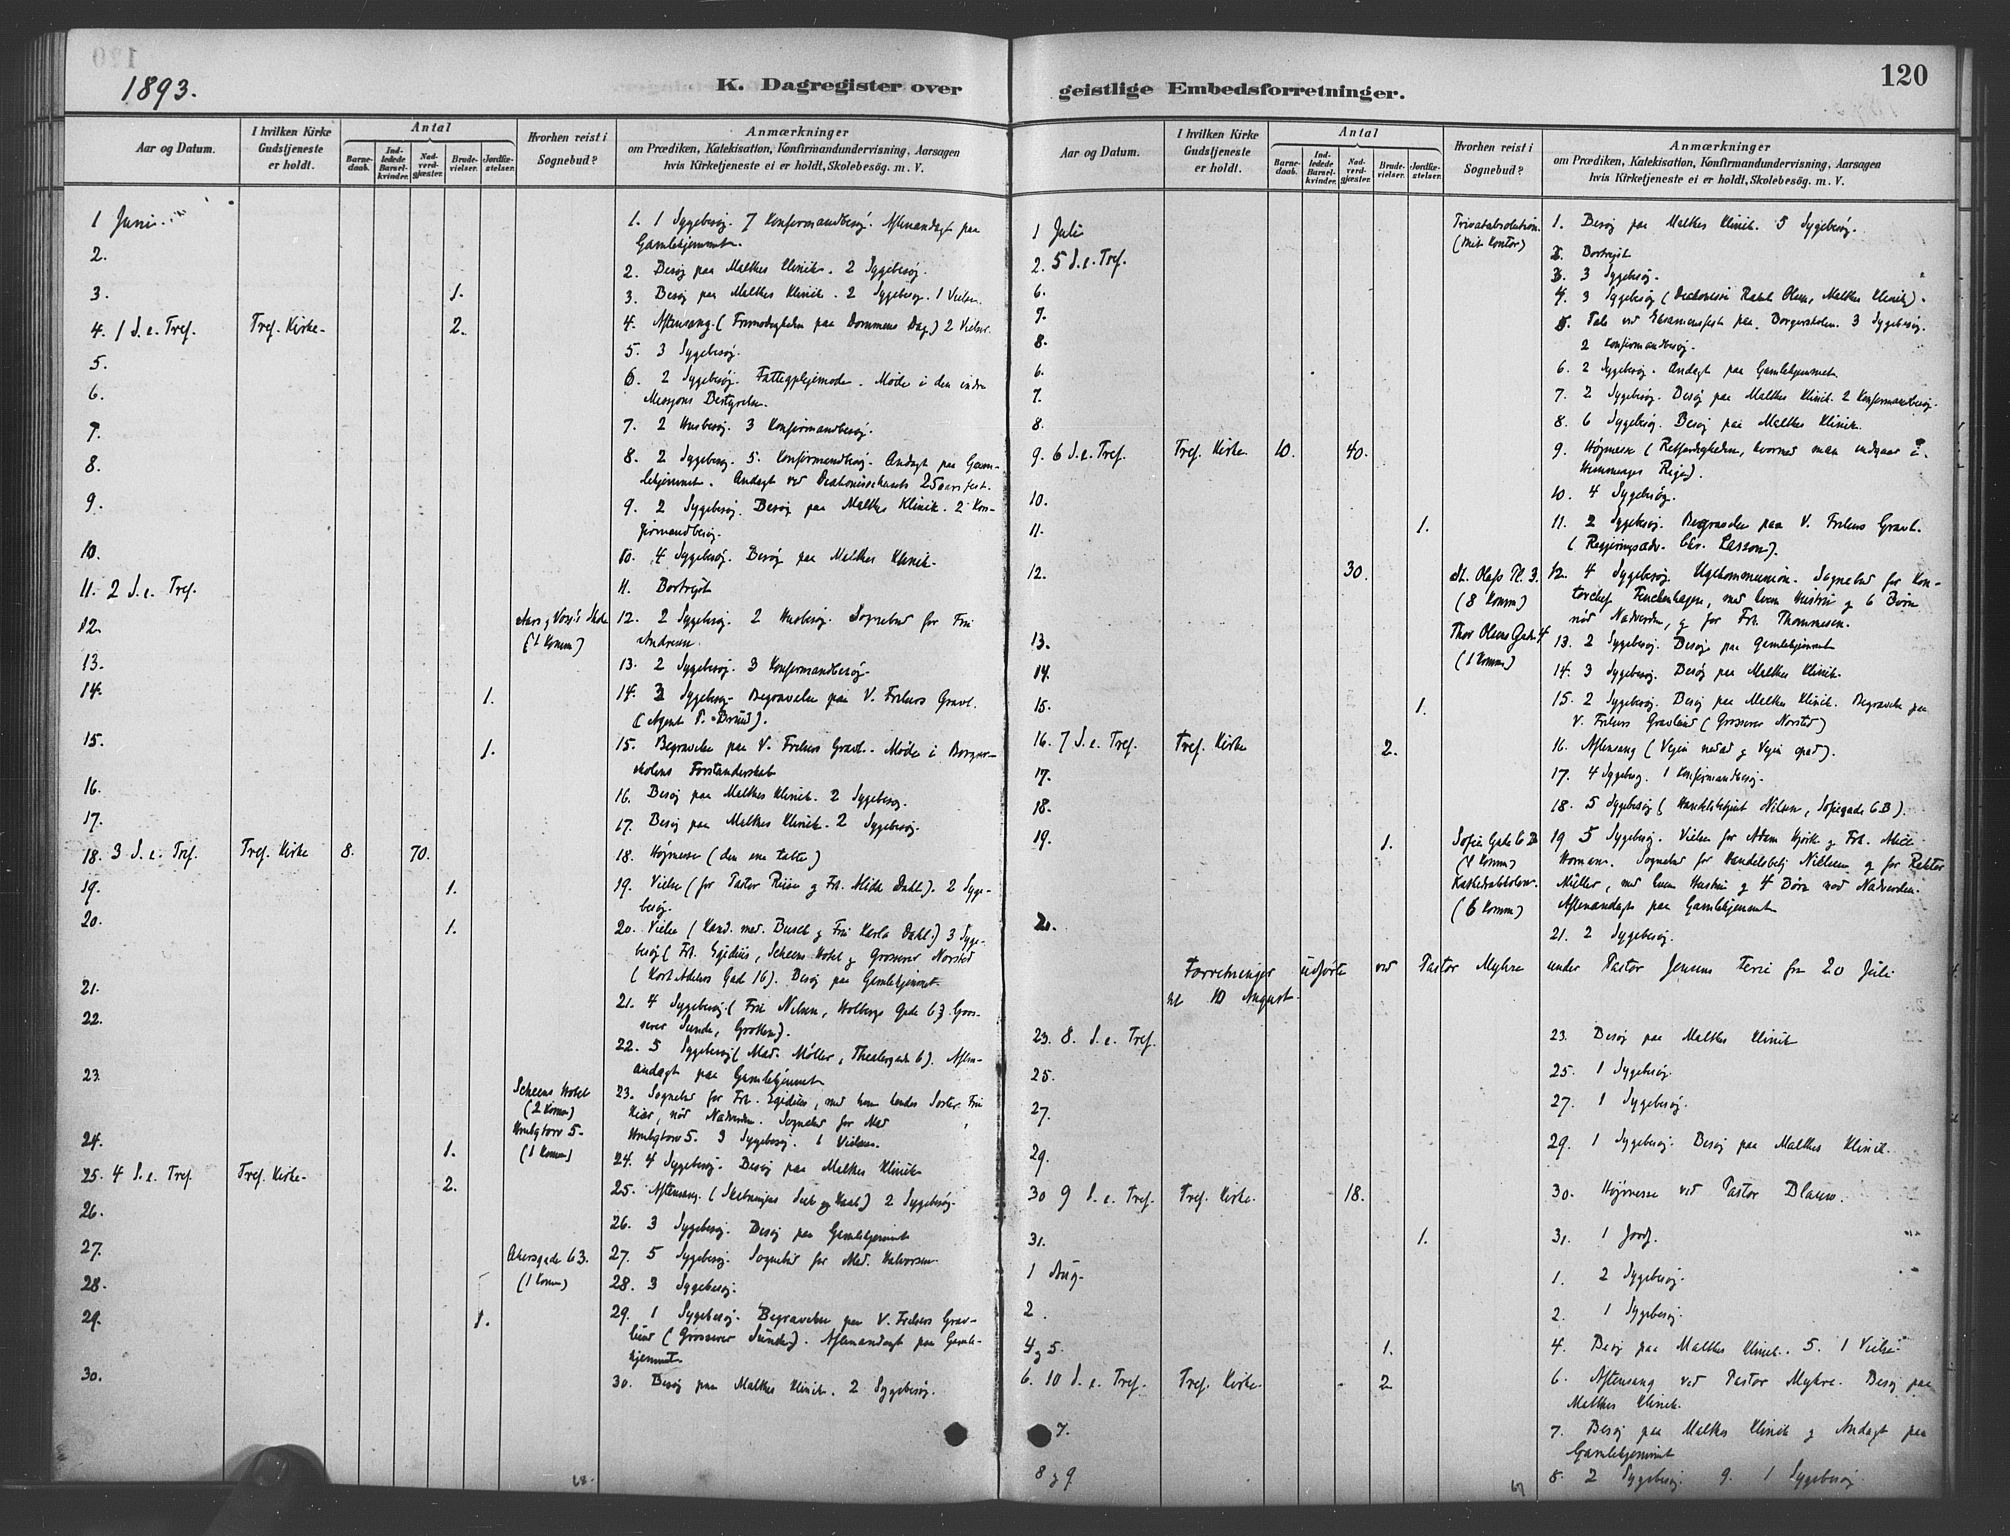 120
1893.
K. Dagregister over geistlige Embedsforretninger.
Aar og Datum.
I hvilken Kirke Gudstjeneste er holdt.
Antal
Barnedaab.
Indledede Barselkvinder.
Nadverdgjæster.
Brudevielser.
Jordfæstelser.
Hvorhen reist i Sognebud?
Anmærkninger
om Prædiken, Katekisation, Konfirmandundervisning, Aarsagen
hvis Kirketjeneste ei er holdt, Skolebesög. m. V.
1 Juni 1. 1 Sygebesøg. 7 Konfirmandbesøg. Aftenandagt paa
Gamlehjemmet.
2. 2. Besøg paa Malthes Klinik. 2 Sygebesøg.
3. 1. 3. Besøg paa Malthes Klinik. 2 Sygebesøg. 1 Vielse.
4. 1 S. e. Tref. Tref. Kirke. 2. 4. Aftensang. (Frimodigheden paa Dommens Dag) 2 Vielser.
5. 5. 3 Sygebesøg.
6. 6. 2 Sygebesøg. Fattigplejemøde. Møde i den indre
Missions Bestyrelse.
7. 7. 2 Husbesøg. 3 Konfirmandbesøg.
8. 8. 2 Sygebesøg. 5 Konfirmandbesøg. Andagt paa Gam-
lehjemmet. Andagt ved Diakonissehusets 25aarsfest.
9. 9. 2 Sygebesøg. Besøg paa Malthes Klinik. 2 Kon-
firmandbesøg.
10. 10. 4 Sygebesøg. Besøg paa Malthes Klinik.
11. 2 S. e. Tref. 11. Bortrejst
12. (1 Komm) 12. 2 Sygebesøg. 2 Husbesøg. Sognebud for Fru
Andresen.
13. 13. 2 Sygebesøg. 3 Konfirmandbesøg.
14. 1. 14. 3 Sygebesøg. Begravelse paa V. Frelsers Gravl.
(Agent P. Bruud).
15. 1. 15. Begravelse paa V. Frelsers Gravl. Møde i Borger-
skolens Forstanderskab
16. 16. Besøg paa Malthes Klinik. 2 Sygebesøg.
17. 17. Besøg paa Malthes Klinik. 2 Sygebesøg.
18. 3 S. e. Tref. Tref. Kirke 8. 70. 18. Højmesse (den ene tabte)
19. 1. 19. Vielse (for Pastor Riise og Frk. Dahl). 2 Syge-
besøg.
20. 1. 20. Vielse (Kand. med. Busch og Fru Karla Dahl.) 3 Syge-
besøg (Frk. Egidius, Scheens Hotel og Grosserer Norsted
(Kort Adelers Gad 16). Besøg paa Gamlehjemmet.
21. 21. 4 Sygebesøg. (Fru Nilsen, Holbergs Gade 63. Gros-
serer Sunde, Grotten).
22. 22. 5 Sygebesøg (Mad. Møller, Theatergade 6). Aften-
andagt paa Gamlehjemmet
23. Scheens Hotel (2 Komm) 23. Sognebud for Frk. Egidius, med hvem hendes Søster Fru
Kiær, nød Nadverden. Sognebud for Mad
24. 1. (1 Komm) 5. 3 Sygebesøg. 1 Vielse.
24. 4 Sygebesøg. Besøg paa Malthes Klinik
25. 4 S. e. Tref. Tref. Kirke. 2. 25. Aftensang. 2 Sygebesøg.
26. 26. 3 Sygebesøg. Besøg paa Gamlehjemmet
27. Akersgade 63. (1 Komm) 27. 5 Sygebesøg. Sognebud for Mad. Halvorsen
28. 28. 3 Sygebesøg.
29. 1. 29. 1 Sygebesøg. Begravelse paa V. Frelsers Grav-
lund (Grosserer Sunde). Aftenandagt paa Gamle-
hjemmet
30. 30. Besøg paa Malthes Klinik. 2 Sygebesøg.
68.
Aar og Datum.
I hvilken Kirke Gudstjeneste er holdt.
Antal
Barnedaab.
Indledede Barselkvinder.
Nadverdgjæster.
Brudevielser.
Jordfæstelser.
Hvorhen reist i Sognebud?
Anmærkninger
om Prædiken, Katekisation, Konfirmandundervisning, Aarsagen
hvis Kirketjeneste ei er holdt, Skolebesög. m. V.
1 Juli Privatabsolution. (mit Kontor) 1. Besøg paa Malthes Klinik. 5 Sygebesøg.
2. 5 S. e. Tref. 2. Bortrejst
6. 3. 3 Sygebesøg.
7. 4. 3 Sygebesøg (Diakonisse Olsen, Malthes Klinik).
8. 5. Tale ved Examensfest paa Borgerskolen. 3 Sygebesøg.
2 Konfirmandbesøg.
6. 6. 2 Sygebesøg. Andagt paa Gamlehjemmet
7. 7. 2 Sygebesøg. Besøg paa Malthes Klinik. 2 Konfirmandbesøg.
8. 8. 6 Sygebesøg. Besøg paa Malthes Klinik.
9. 6 S. e. Tref. Tref. Kirke 10. 40. 9. Højmesse (Retfærdigheden, hvormed man indgaar i
Himmeriges Rige).
10. 10. 4 Sygebesøg.
11. 1. 11. 2 Sygebesøg. Begravelse paa V. Frelsers Gravl.
(Regjeringsadv. Chr. Lasson).
12. 30. St. Olafs Pl. 3. (8 Komm) 12. 4 Sygebesøg. Ugekommunion. Sognebud for Kon-
torchef Finckenhagen, med hvem Hustru og 6 Børn
nød Nadverden, og for Frk. Thommesen.
13. Thor Olsens Gade 4 (1 Komm) 13. 2 Sygebesøg. Besøg paa Gamlehjemmet
14. 14. 3 Sygebesøg. Besøg paa Malthes Klinik.
15. 1. 15. 2 Sygebesøg. Besøg paa Malthes Klinik. Begravelse paa
V. Frelsers Gravlund (Grosserer Norsted)
16. 7 S. e. Tref. Tref. Kirke 2. 16. Aftensang (Vejen nedad og Vejen opad).
17. 17. 4 Sygebesøg. 1 Konfirmandbesøg.
18. 18. 5 Sygebesøg (Handelsbetjent Nilsen, Sofiegade 6B).
19. 1. Sofies Gade 6 B (1 Komm) 19. 5 Sygebesøg. Vielse for Adam Hjork og Frk. Alice
Homann. Sognebud for Handelsbetj. Nilsen og for Rektor
Kathedralskolen. (6 Komm) Müller, med hvem Hustru og 4 Børn nød Nadverden.
Aftenandagt paa Gamlehjemmet
20. 21. 2 Sygebesøg.
Forretninger udførte ved Pastor Myhre under Pastor Jensens Ferie fra 20 Juli
til 10 August.
23. 8. S. e. Tref. 23. Besøg paa Malthes Klinik
25. 25. 1 Sygebesøg
27. 27. 1 Sygebesøg.
29. 29. 1 Sygebesøg. Besøg paa Malthes Klinik.
30 9 S. e. Tref. Tref. Kirke. 18. 30. Højmesse ved Pastor Blauw.
31. 1. 31. 1 Jordf.
1 Aug. 1. 2 Sygebesøg.
2 2. 1 Sygebesøg.
4 og 5. 1. 4. Besøg paa Malthes Klinik. 5. 1 Vielse
6. 10 S. e. Tref. Tref. Kirke. 2 6. Aftensang ved Pastor Myhre. Besøg paa
Malthes Klinik.
7. 7. Besøg paa Malthes Klinik og Andagt paa
Gamlehjemmet
8 og 9 8. 2 Sygebesøg. 9. 1 Sygebesøg